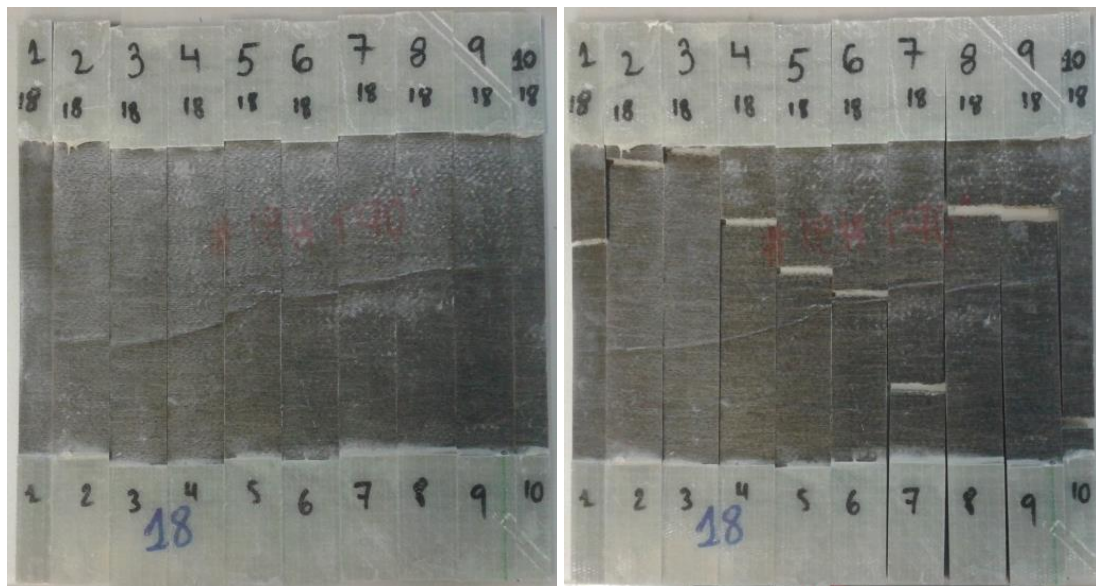 1 2 3 4 5 6 7 8 9 10
18 18 18 18 18 18 18 18 18 18
1 2 3 4 5 6 7 8 9 10
18
1 2 3 4 5 6 7 8 9 10
18 18 18 18 18 18 18 18 18 18
1 2 3 4 5 6 7 8 9 10
18